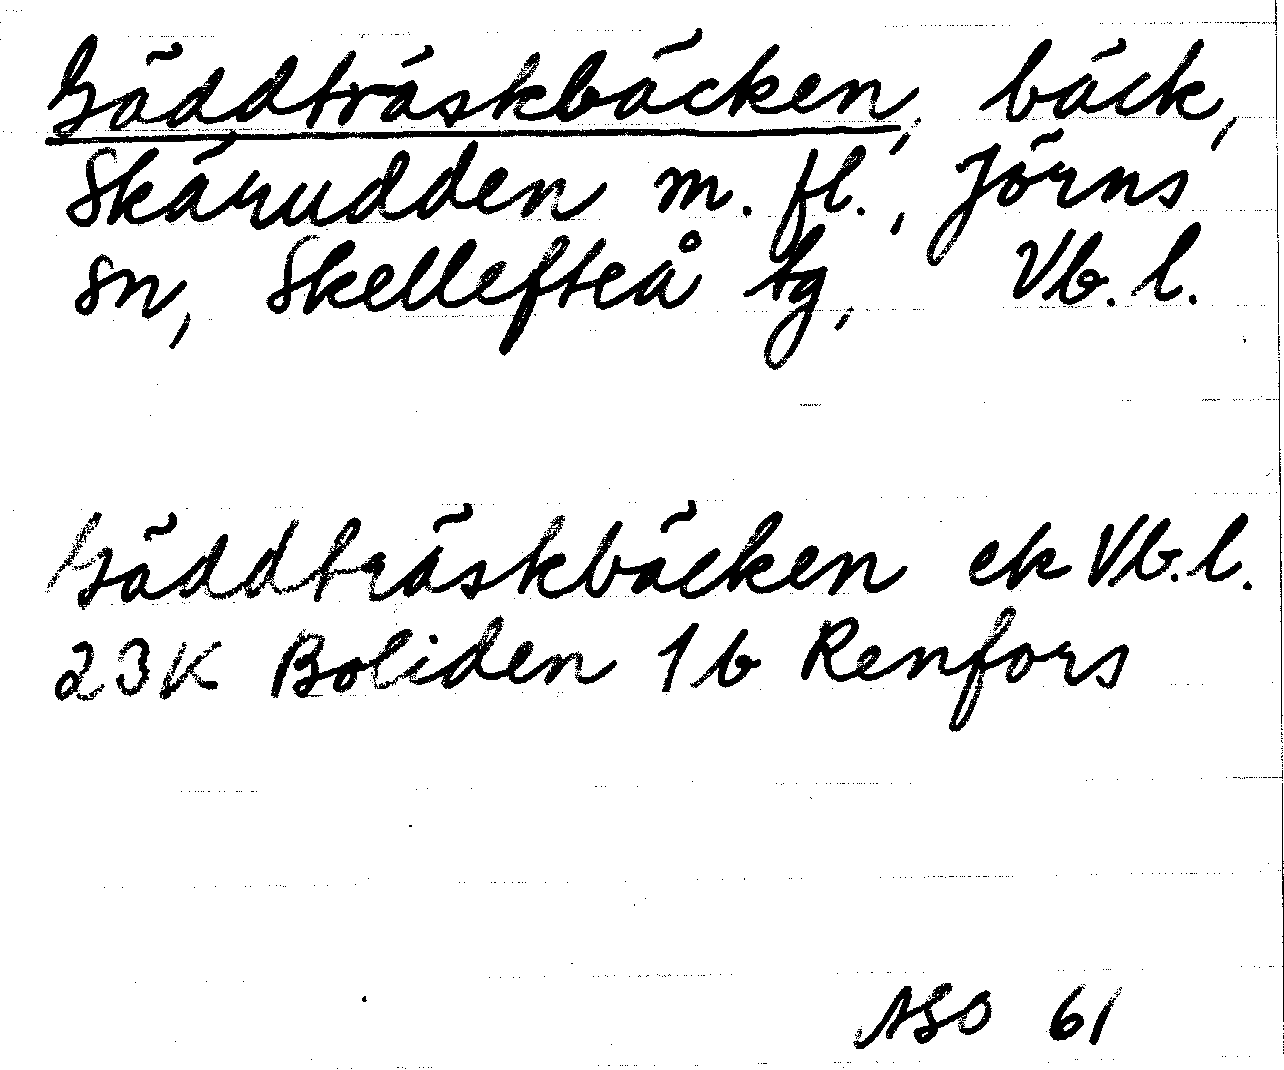 Gäddträskbäcken, bäck,
Skärudden m. fl., Jörns
sn, Skellefteå tg, Vb. l.
Gäddträskbäcken ek Vb. l.
23K Boliden 1b Renfors
ASO 61